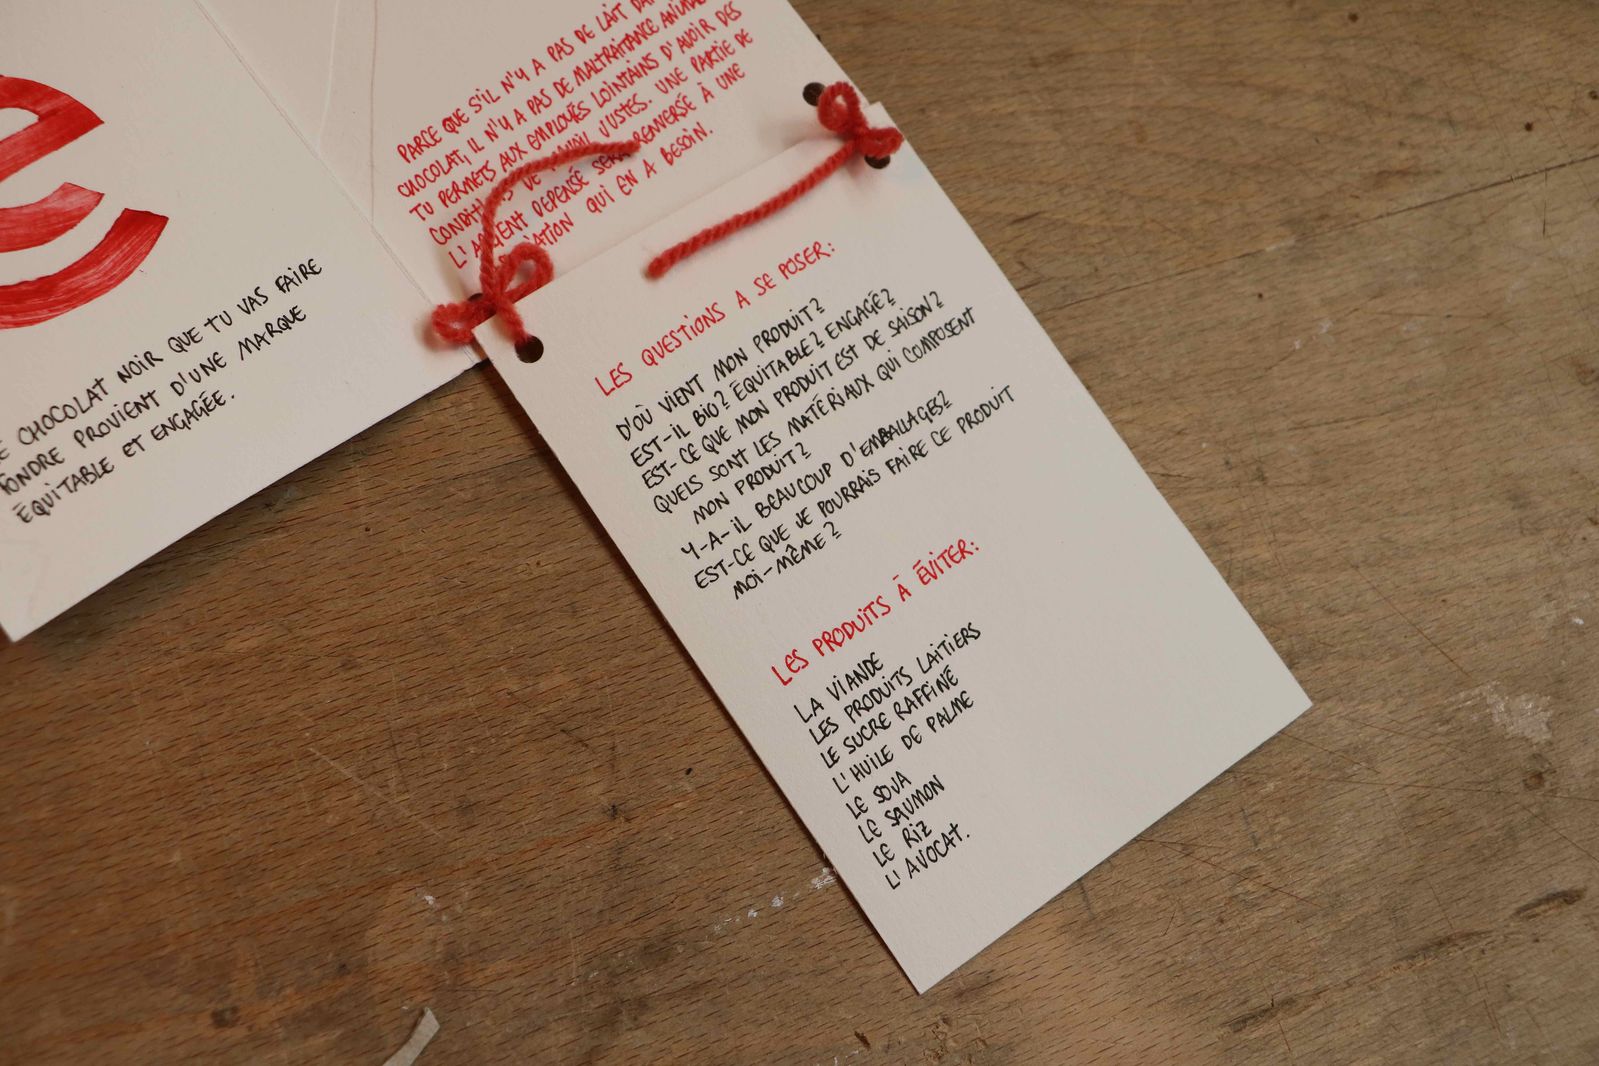 e
E CHOCOLAT NOIR QUE TU VAS FAIRE
FONDRE PROVIENT D'UNE MARQUE
ÉQUITABLE ET ENGAGÉE.
PARCE QUE S'IL N'Y A PAS DE LAIT DA
CHOCOLAT, IL N'Y A PAS DE MALTRAITANCE ANIMA
TU PERMETS AUX EMPLOYÉS LOINTAINS D'AVOIR DES
CONDITIONS DE JUSTES. UNE PARTIE DE
L'ARGENT DEPENSÉ SERA RENVERSÉ À UNE
IATION QUI EN A BESOIN.
LES QUESTIONS A SE POSER:
D'OÙ VIENT MON PRODUIT?
EST-IL BIO? ÉQUITABLE? ENGAGÉ?
EST-CE QUE MON PRODUIT EST DE SAISON?
QUELS SONT LES MATÉRIAUX QUI COMPOSENT
MON PRODUIT?
Y-A-IL BEAUCOUP D'EMBALLAGES?
EST-CE QUE JE POURRAIS FAIRE CE PRODUIT
MOI-MÊME?
LES PRODUITS À ÉVITER:
LA VIANDE
LES PRODUITS LAITIERS
LE SUCRE RAFFINÉ
L'HUILE DE PALME
LE SOJA
LE SAUMON
LE RIZ
L'AVOCAT.